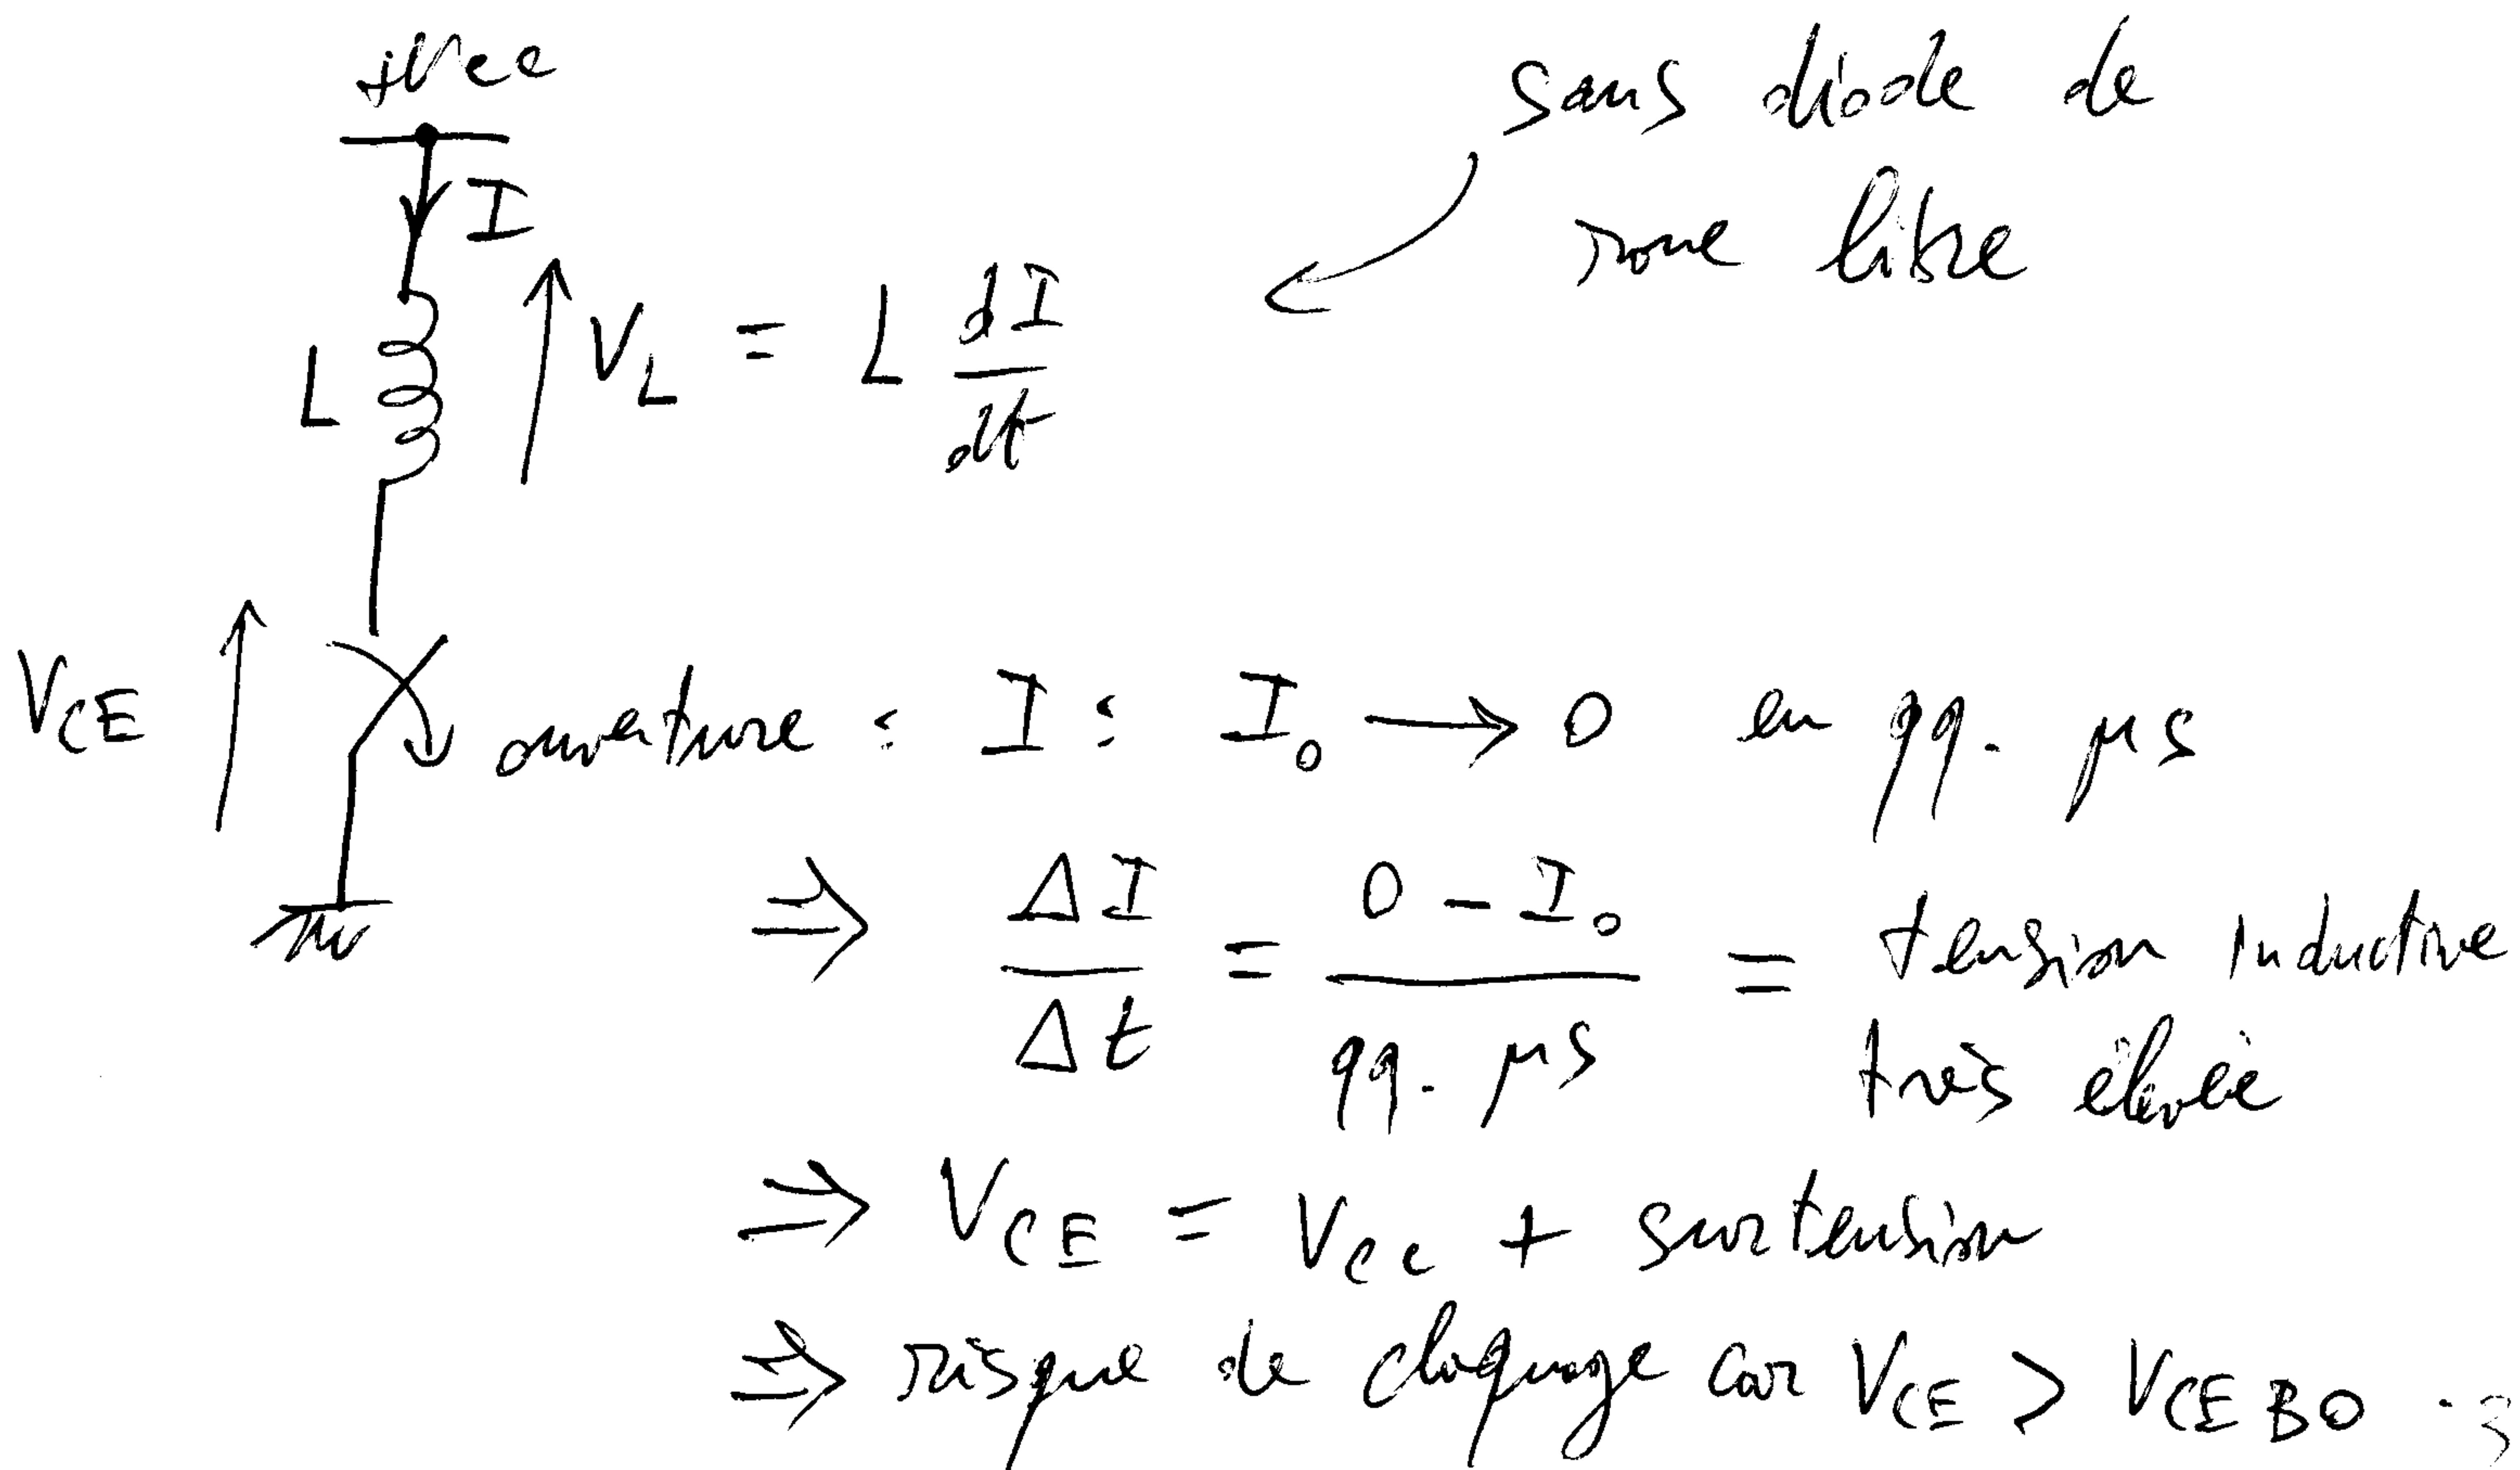 +Vcc
sans diode de
roue libre
I
L
V_L = L dI/dt
V_CE
ouverture : I : I_0 → 0 en qq. µs
⇒ ΔI/Δt = (0 - I_0)/(qq. µs) = tension inductive
très élevée
⇒ V_CE = Vcc + surtension
⇒ risque de claquage car V_CE > V_CEBO